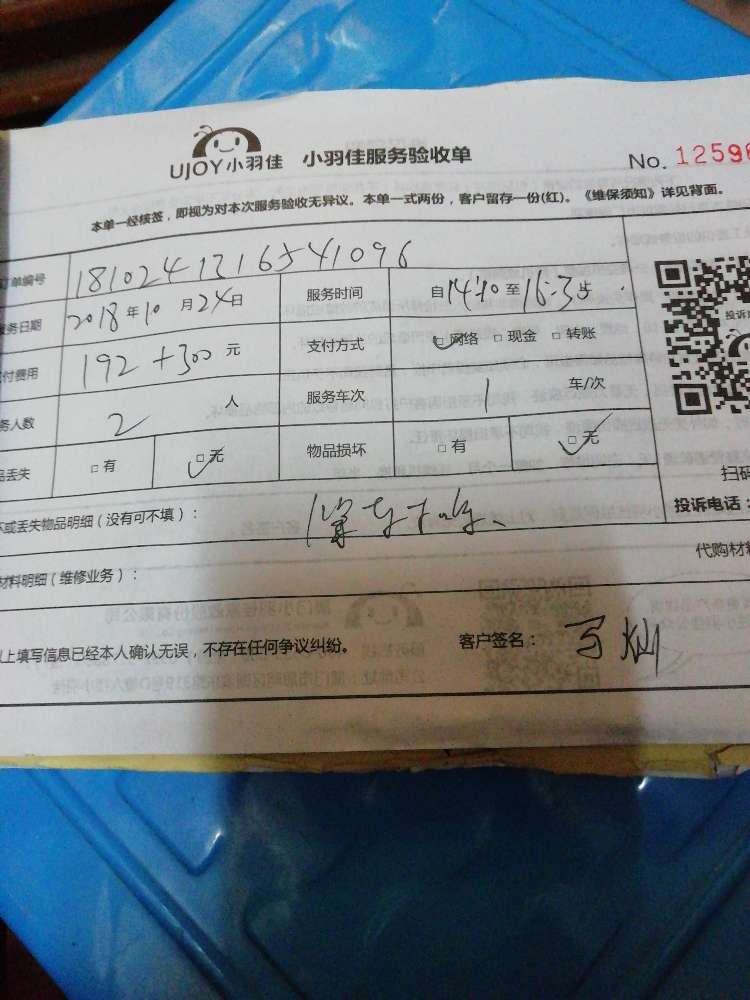 UJOY小羽佳 小羽佳服务验收单
No. 12596
本单一经核签，即视为对本次服务验收无异议。本单一式两份，客户留存一份(红)。《维保须知》详见背面。
订单编号 1810241216541096
务日期 2018年10月24日 服务时间 自14:10至16:35
付费用 192+300 元 支付方式 □网络 □现金 □转账
务人数 2 人 服务车次 1 车/次
品丢失 □有 □无 物品损坏 □有 □无
扫码
投诉电话：
坏或丢失物品明细（没有可不填）：
代购材
材料明细（维修业务）：
以上填写信息已经本人确认无误，不存在任何争议纠纷。 客户签名：